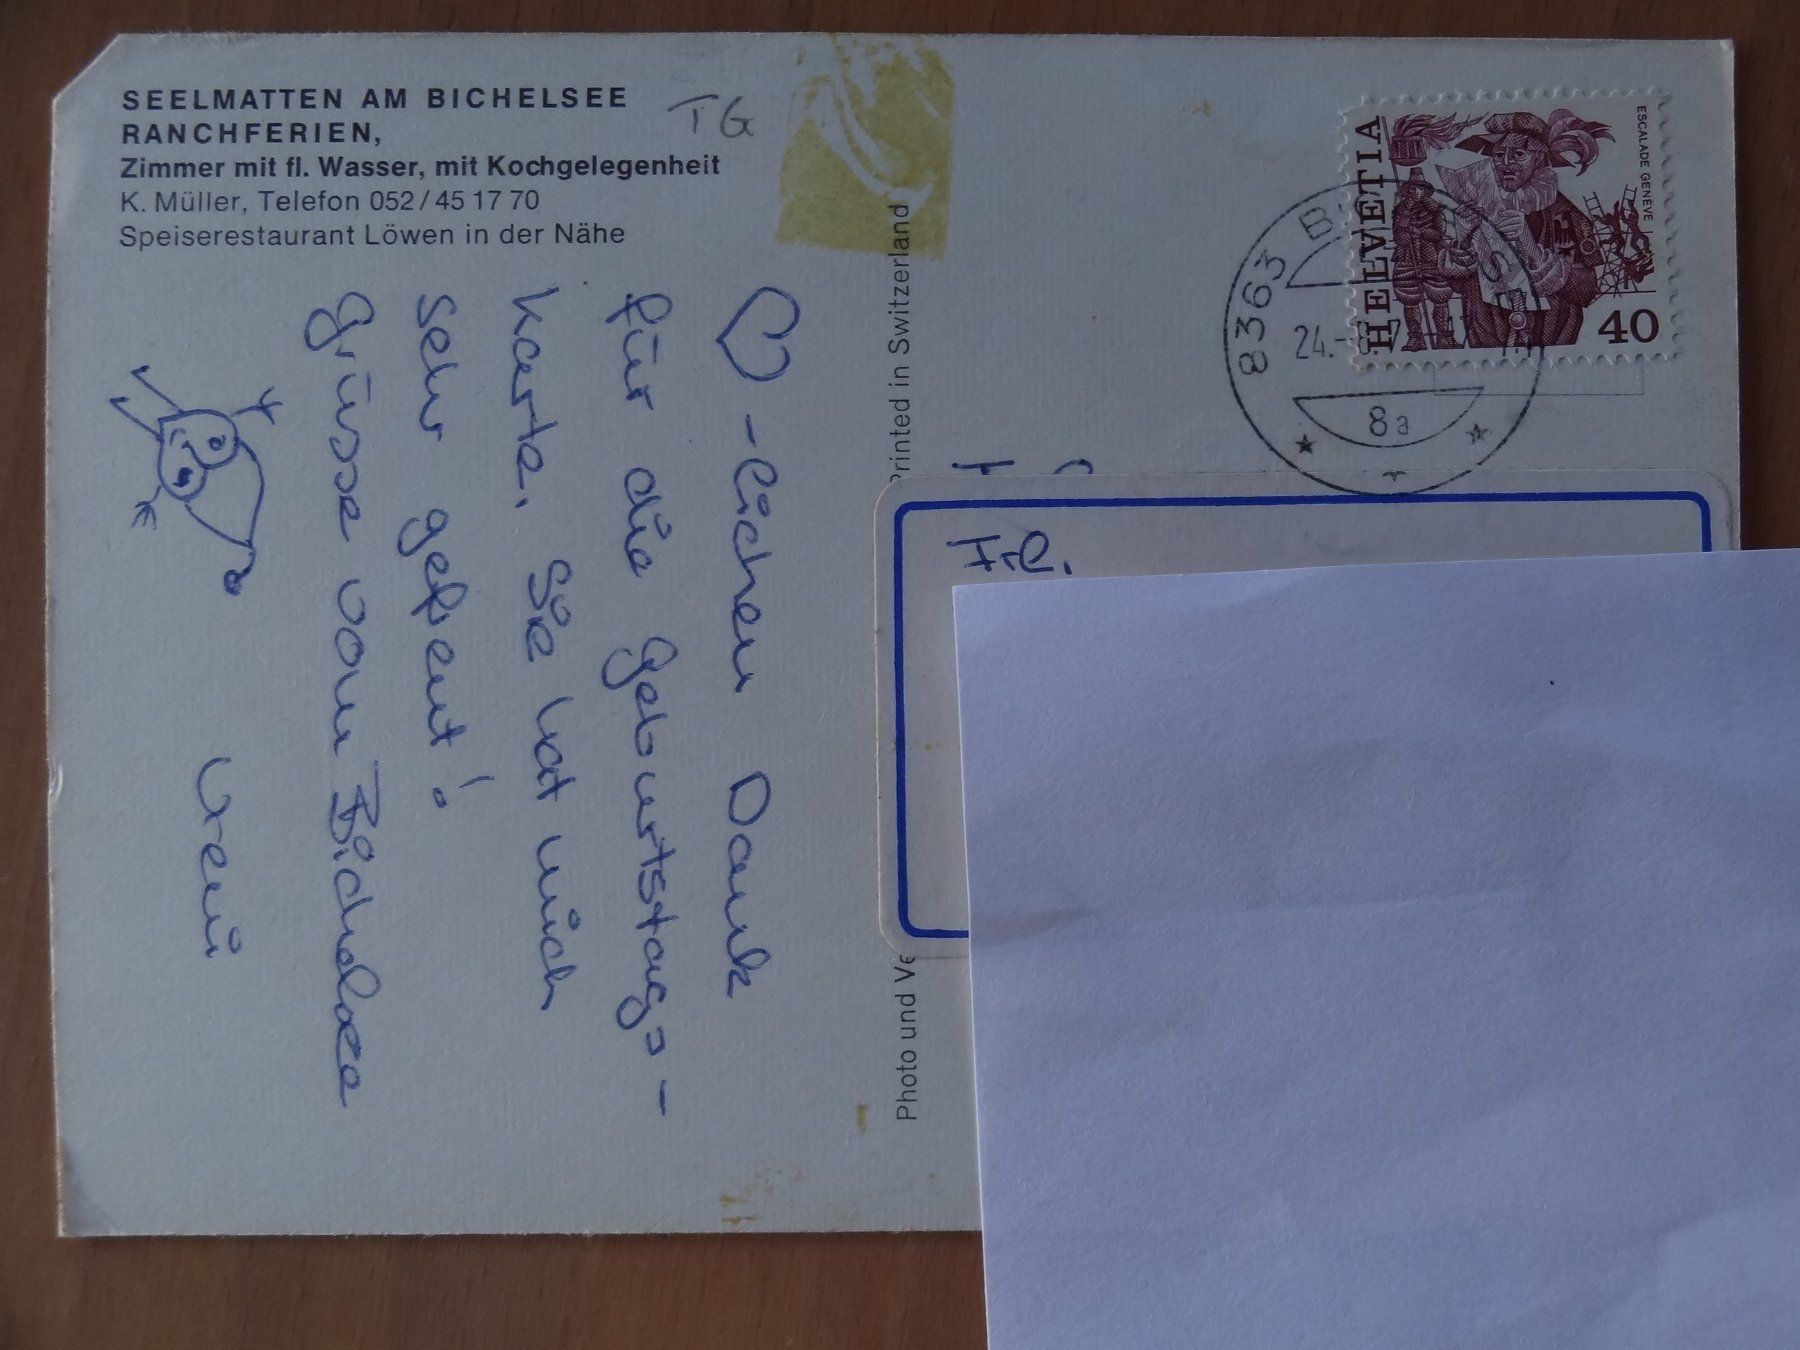 SEELMATTEN AM BICHELSEE
RANCHFERIEN,
Zimmer mit fl. Wasser, mit Kochgelegenheit
K. Müller, Telefon 052/45 17 70
Speiserestaurant Löwen in der Nähe
TG
♡-lichen Dank
für die Geburtstags-
karte. Sie hat mich
sehr gefreut!
Grüsse vom Bichelsee
Vreni
Photo und Ve
Printed in Switzerland
HELVETIA
ESCALADE GENÈVE
40
8363 B
24.-8.7
8a
Frl.